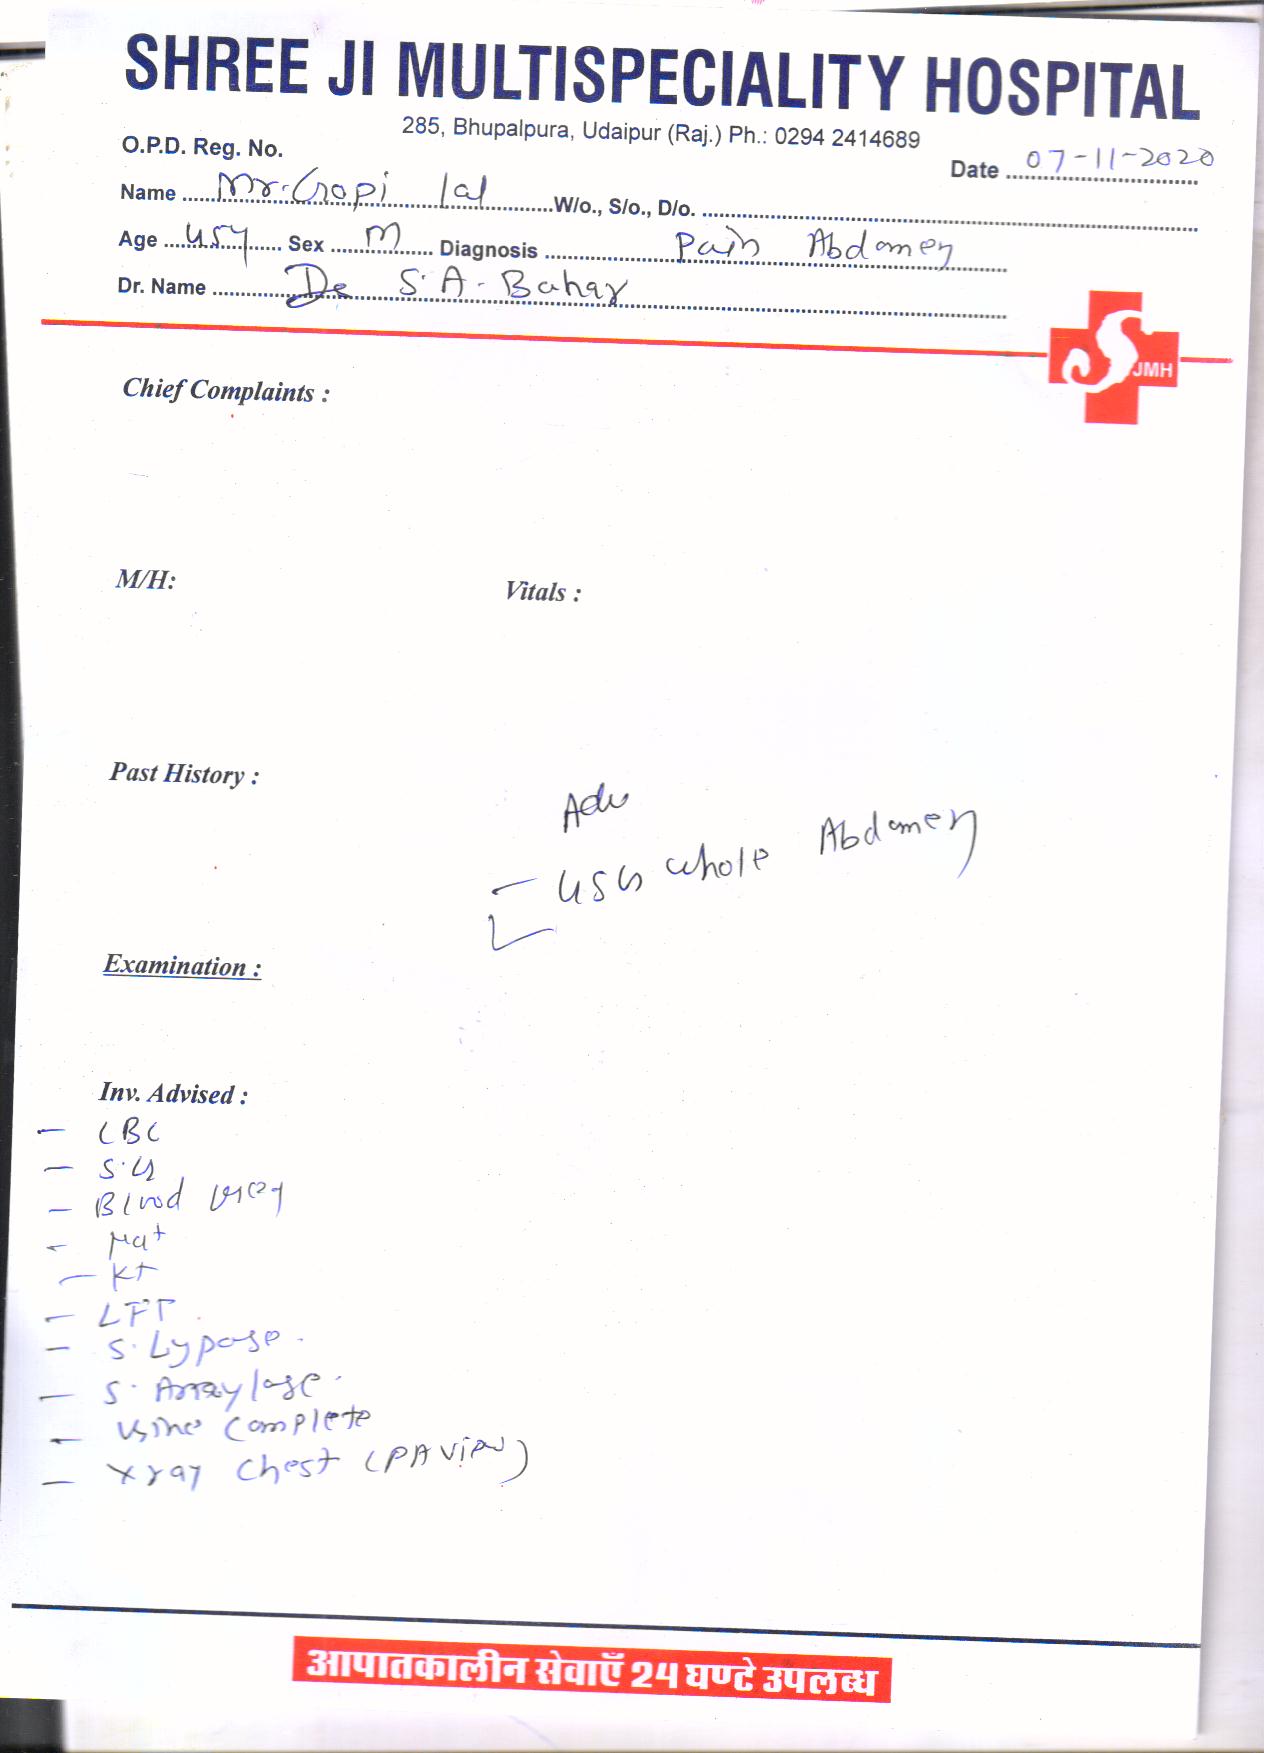 SHREE JI MULTISPECIALITY HOSPITAL
285, Bhupalpura, Udaipur (Raj.) Ph.: 0294 2414689
O.P.D. Reg. No.
Date 07-11-2020
Name Mr. Gopi lal W/o., S/o., D/o.
Age 45y Sex M Diagnosis Pain Abdomen
Dr. Name Dr S.A. Bahar
S JMH
Chief Complaints :
M/H: Vitals :
Past History :
Adv
- USG whole Abdomen
Examination :
Inv. Advised :
- CBC
- S.
- Blood Urea
- Na+
- K+
- LFT
- S. Lypase.
- S. Amaylase.
- Urine Complete
- Xray Chest (PA view)
आपातकालीन सेवाएँ 24 घण्टे उपलब्ध